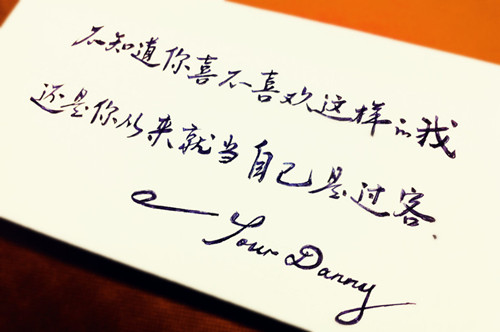 不知道你喜不喜欢这样的我
还是你从来就当自己是过客.
Your Danny